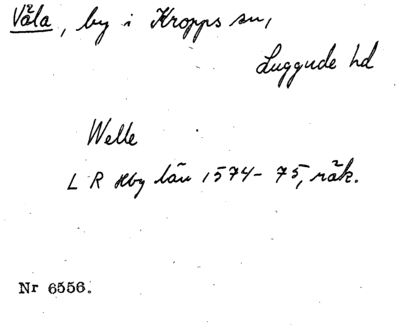 Väla, by i Kropps sn,
Luggude hd
Welle
L R Hby län 1574-75, räk.
Nr 6556.